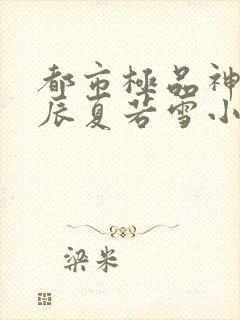 都市極品神
辰夏若雪小
梁米